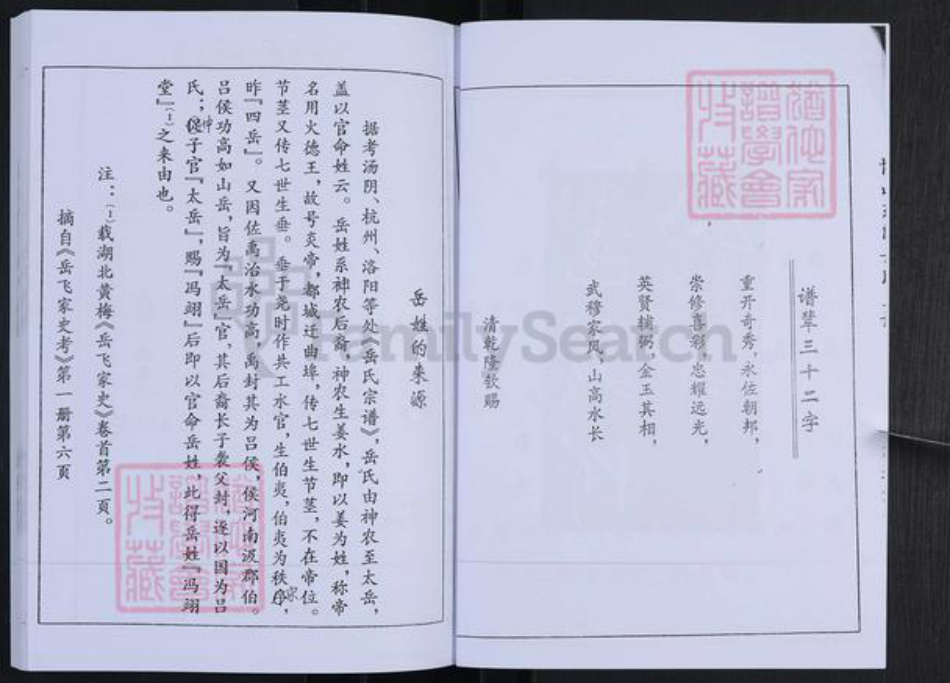 谱辈三十二字
重开奇秀，永佐朝邦，
崇修喜彩，忠耀远光，
英贤辅弼，金玉其相，
武穆家风，山高水长
清乾隆钦赐
岳姓的来源
据考汤阴、杭州、洛阳等处《岳氏宗谱》，岳氏由神农至太岳，
盖以官命姓云。岳姓系神农后裔，神农生姜水，即以姜为姓，称帝
名用火德王，故号炎帝，都城迁曲埠，传七世生节茎，不在帝位。
节茎又传七世生垂。垂于尧时作共工水官，生伯夷，伯夷为秩序，宗
昨『四岳』。又因佐禹治水功高，禹封其为吕侯，侯河南汲郡伯。
吕侯功高如山岳，旨为『太岳』官，其后裔长子袭父封，遂以国为吕
氏；仲子官『太岳』，赐『冯翊』后即以官命岳姓，此得岳姓『冯翊
堂』(1)之来由也。
注：(1)载湖北黄梅《岳飞家史》卷首第二页。
摘自《岳飞家史考》第一册第六页
猶他家
譜學會
收藏
猶他家
譜學會
收藏
FamilySearch